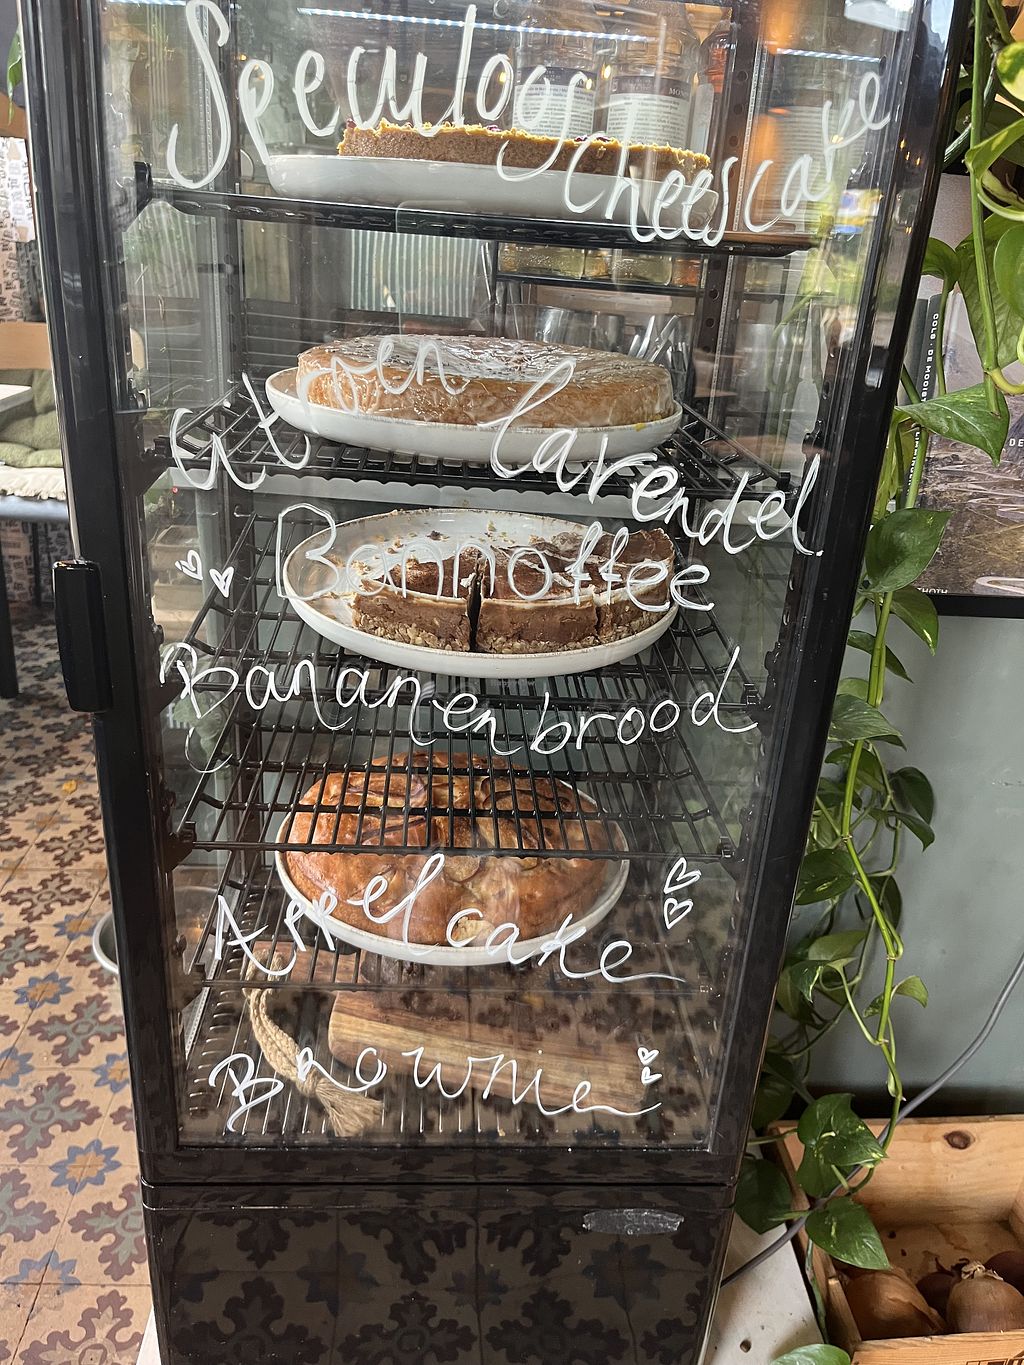 Speculoos cheescake
Citroen lavendel
Bannoffee
Bananenbrood
Appelcake
Brownie